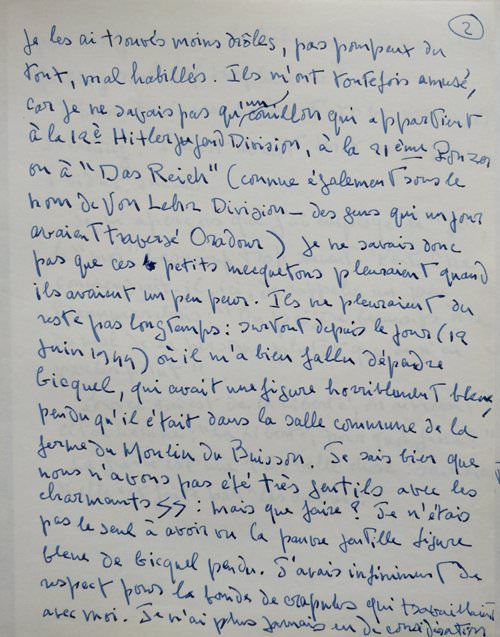 2
Je les ai trouvés moins drôles, pas pompeux du
tout, mal habillés. Ils m'ont toutefois amusé,
car je ne savais pas qu'un couillon qui appartient
à la 12è Hitlerjugend Division, à la 21ème Panzer
ou à "Das Reich" (connue également sous le
nom de Von Lehr Division – des gens qui un jour
avaient traversé Oradour) je ne savais donc
pas que ces petits mecquetons pleuraient quand
ils avaient un peu peur. Ils ne pleuraient du
reste pas longtemps : surtout depuis le jour (12
juin 1944) où il m'a bien fallu dépendre
Bicquel, qui avait une figure horriblement bleue,
pendu qu'il était dans la salle commune de la
ferme du Moulin du Buisson. Je sais bien que
nous n'avons pas été très gentils avec les
charmants SS : mais que faire ? Je n'étais
pas le seul à avoir vu la pauvre gentille figure
bleue de Bicquel pendu. J'avais infiniment de
respect pour la bande de crapules qui travaillaient
avec moi. Je n'ai plus jamais eu de considération